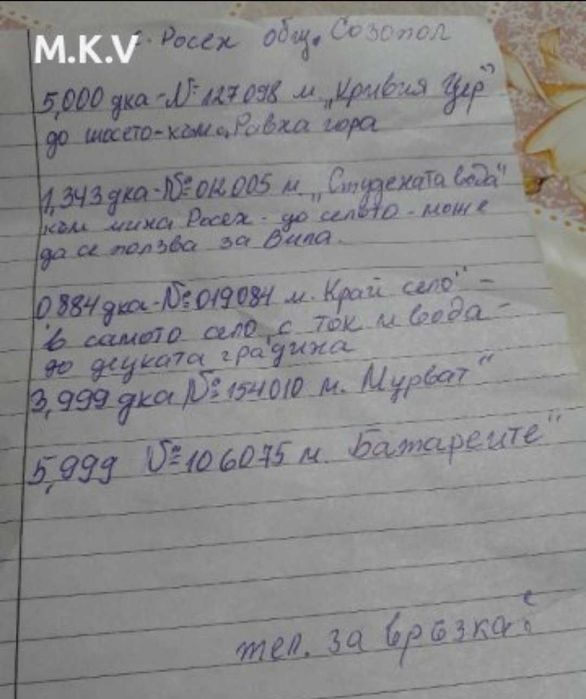 M.K.V
с. Росен общ. Созопол
5,000 дка - № 127098 м. „Кривия Цер"
до шосето - към „Равна гора
1,343 дка - № 012005 м „Студената вода"
към мина Росен - до селото - може
да се ползва за Вила.
0884 дка - № 019084 м. Край село" -
в самото село с ток и вода -
до децката градина
3,999 дка № 154010 м. Мурват"
5,999 № 106075 м. Батареите"
тел. за връзка: